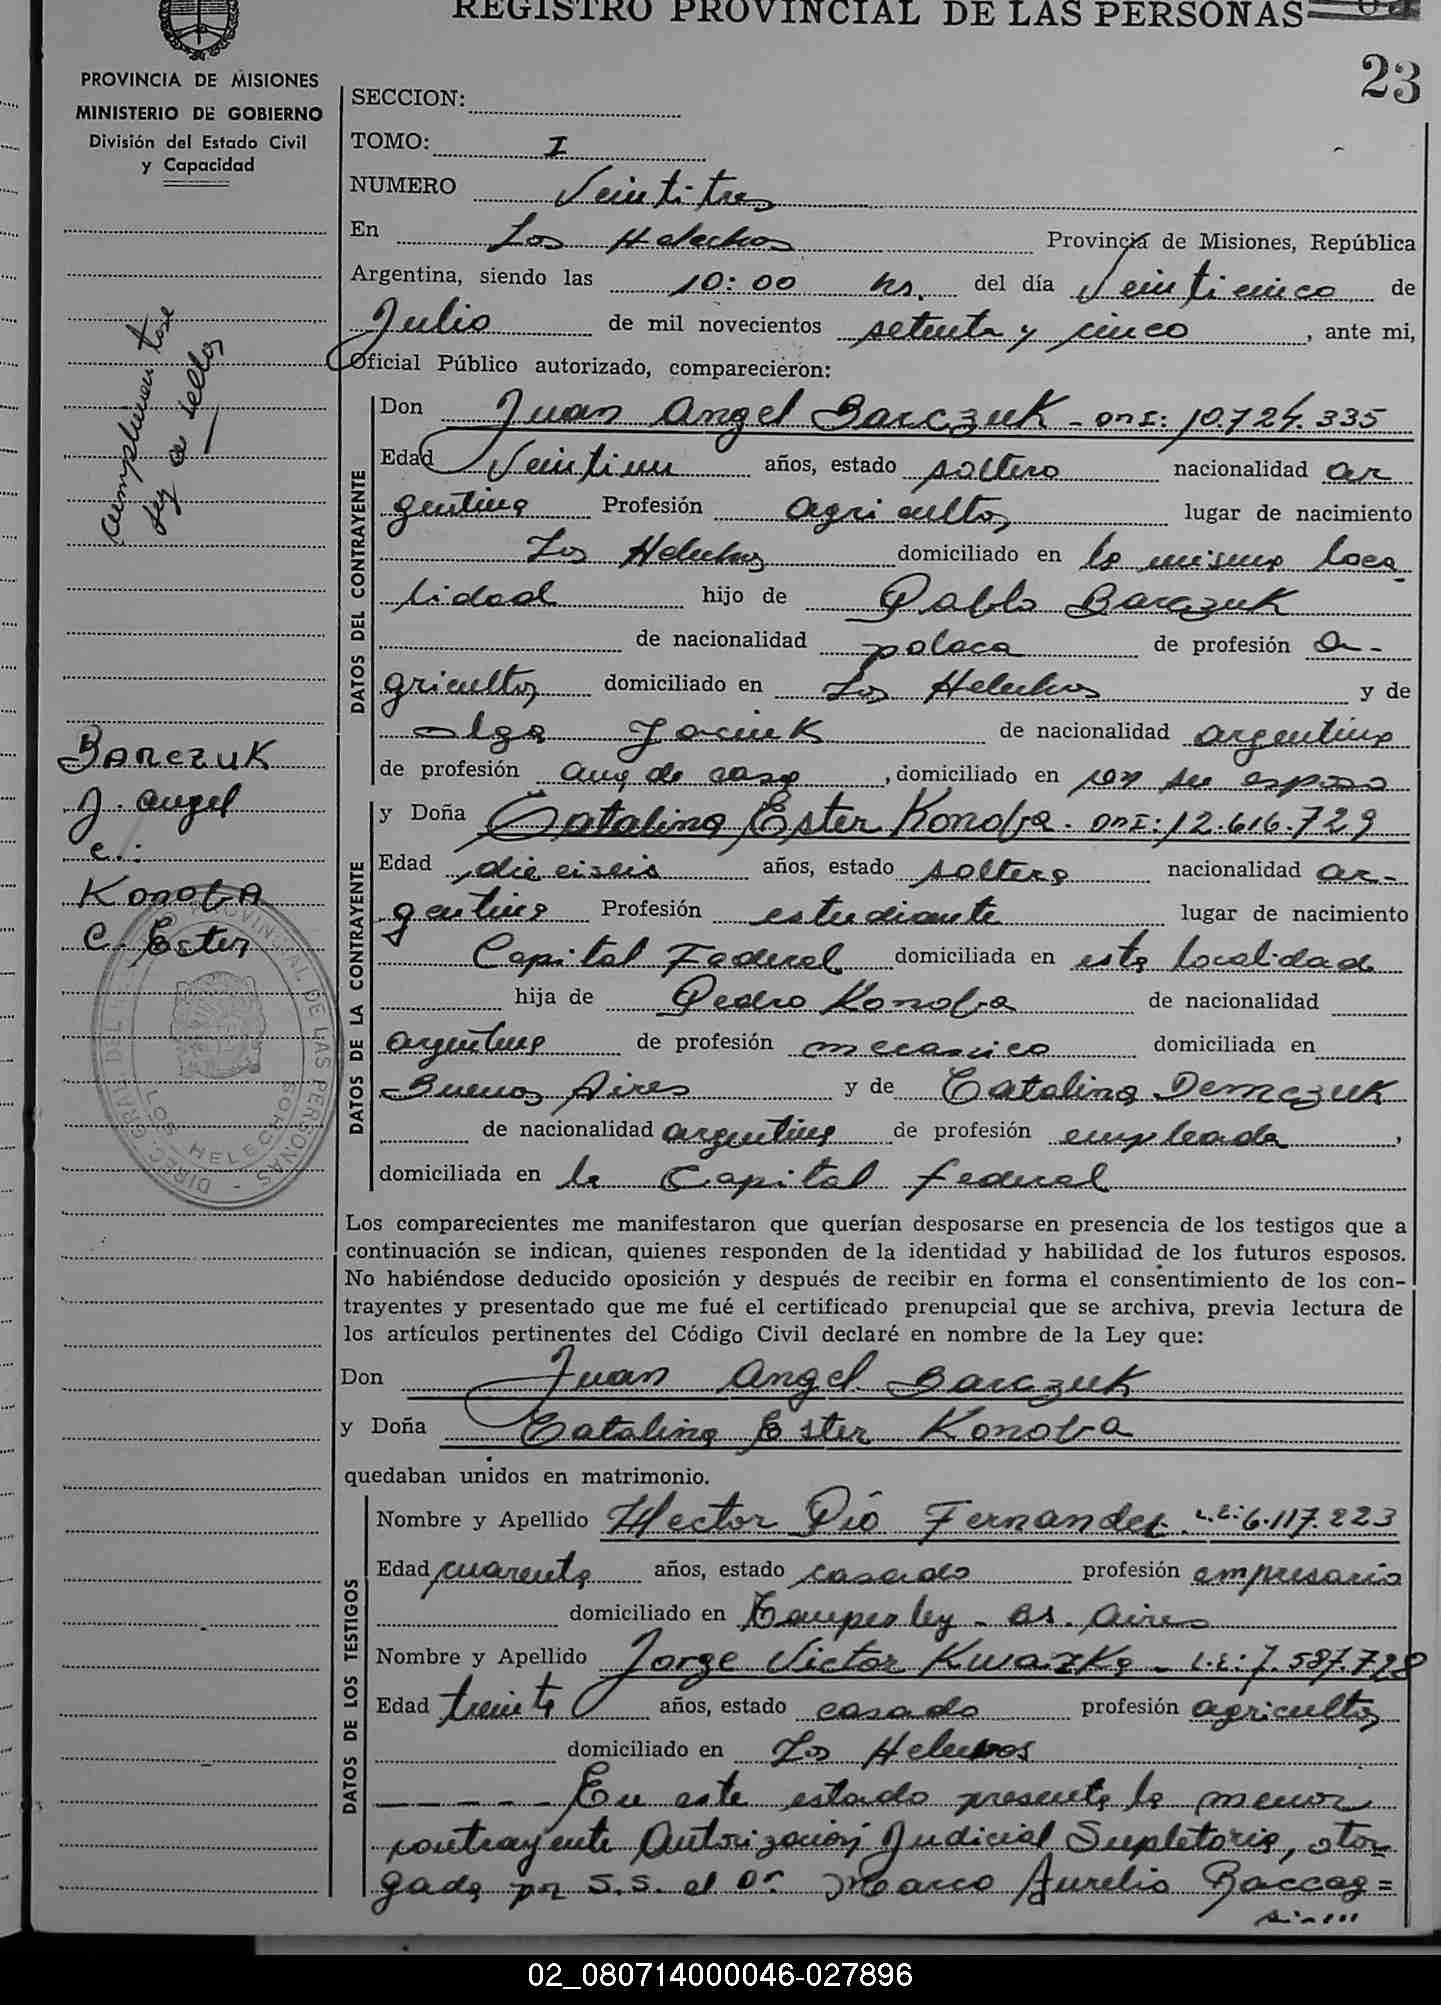 REGISTRO PROVINCIAL DE LAS PERSONAS
23
PROVINCIA DE MISIONES
MINISTERIO DE GOBIERNO
División del Estado Civil
y Capacidad
cumplimentose
ley de sellos
BARCZUK
J. Angel
c.:
KONOBA
C. Ester
DIREC. GRAL DEL R. PROVINCIAL DE LAS PERSONAS -
LOS HELECHOS
SECCION:
TOMO: I
NUMERO Veintitres
En Los Helechos Provincia de Misiones, República
Argentina, siendo las 10:00 hs. del día Veinticinco de
Julio de mil novecientos setenta y cinco, ante mi,
Oficial Público autorizado, comparecieron:
DATOS DEL CONTRAYENTE
Don Juan Angel Barczuk - DNI: 10.724.335
Edad Veintiun años, estado soltero nacionalidad ar
gentina Profesión agricultor lugar de nacimiento
Los Helechos domiciliado en la misma loca
lidad hijo de Pablo Barczuk
de nacionalidad polaca de profesión a-
gricultor domiciliado en Los Helechos y de
Olga Jaciuk de nacionalidad argentina
de profesión ama de casa, domiciliado en con su esposo
DATOS DE LA CONTRAYENTE
y Doña Catalina Ester Konoba. DNI: 12.616.729
Edad dieciseis años, estado soltera nacionalidad ar-
gentina Profesión estudiante lugar de nacimiento
Capital Federal domiciliada en esta localidad
hija de Pedro Konoba de nacionalidad
argentina de profesión mecanico domiciliada en
Buenos Aires y de Catalina Demczuk
de nacionalidad argentina de profesión empleada,
domiciliada en la Capital federal
Los comparecientes me manifestaron que querían desposarse en presencia de los testigos que a
continuación se indican, quienes responden de la identidad y habilidad de los futuros esposos.
No habiéndose deducido oposición y después de recibir en forma el consentimiento de los con-
trayentes y presentado que me fué el certificado prenupcial que se archiva, previa lectura de
los artículos pertinentes del Código Civil declaré en nombre de la Ley que:
Don Juan Angel Barczuk
y Doña Catalina Ester Konoba
quedaban unidos en matrimonio.
DATOS DE LOS TESTIGOS
Nombre y Apellido Hector Pío Fernandez. L.E: 6.117.223
Edad cuarenta años, estado casado profesión empresario
domiciliado en Temperley - Bs. Aires
Nombre y Apellido Jorge Victor Kwazka - L.E: 7.587.728
Edad treinta años, estado casado profesión agricultor
domiciliado en Los Helechos
----En este estado presenta la menor
contrayente Autorización Judicial Supletoria, otor-
gada por S.S. el Dr. Marco Aurelio Baccag=
02_080714000046-027896